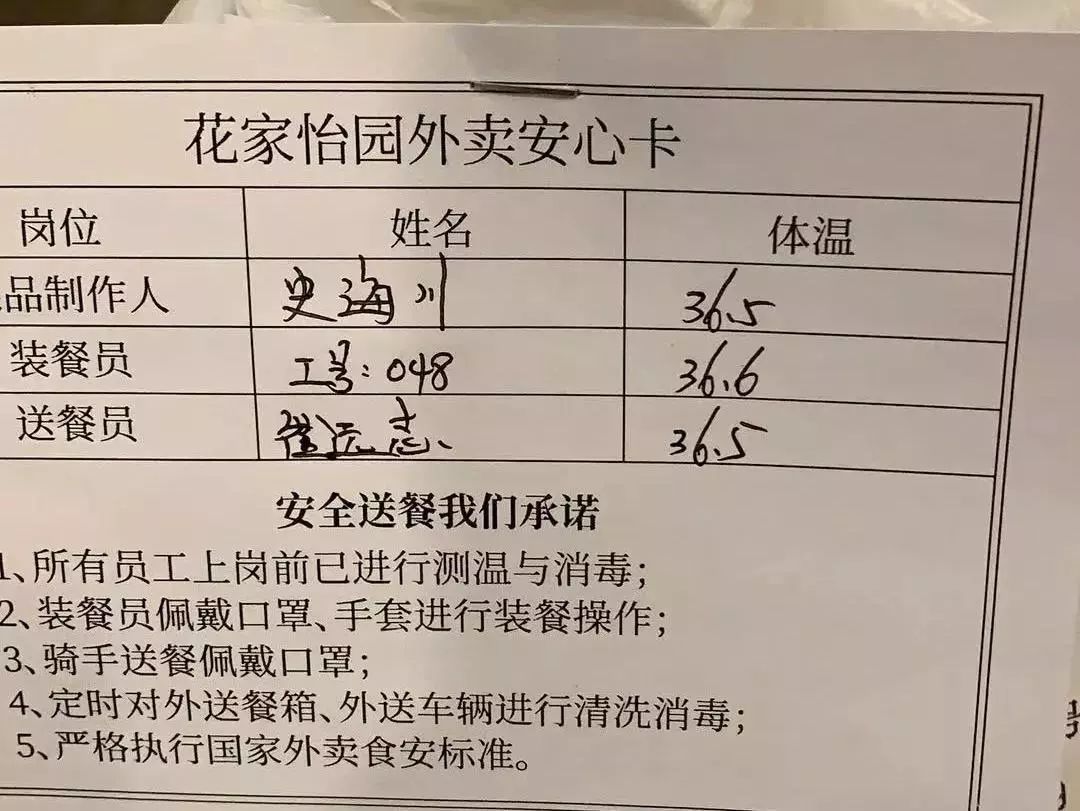 花家怡园外卖安心卡
岗位 姓名 体温
品制作人 史海川 36.5
装餐员 工号:048 36.6
送餐员 崔远志 36.5
安全送餐我们承诺
1、所有员工上岗前已进行测温与消毒;
2、装餐员佩戴口罩、手套进行装餐操作;
3、骑手送餐佩戴口罩;
4、定时对外送餐箱、外送车辆进行清洗消毒;
5、严格执行国家外卖食安标准。